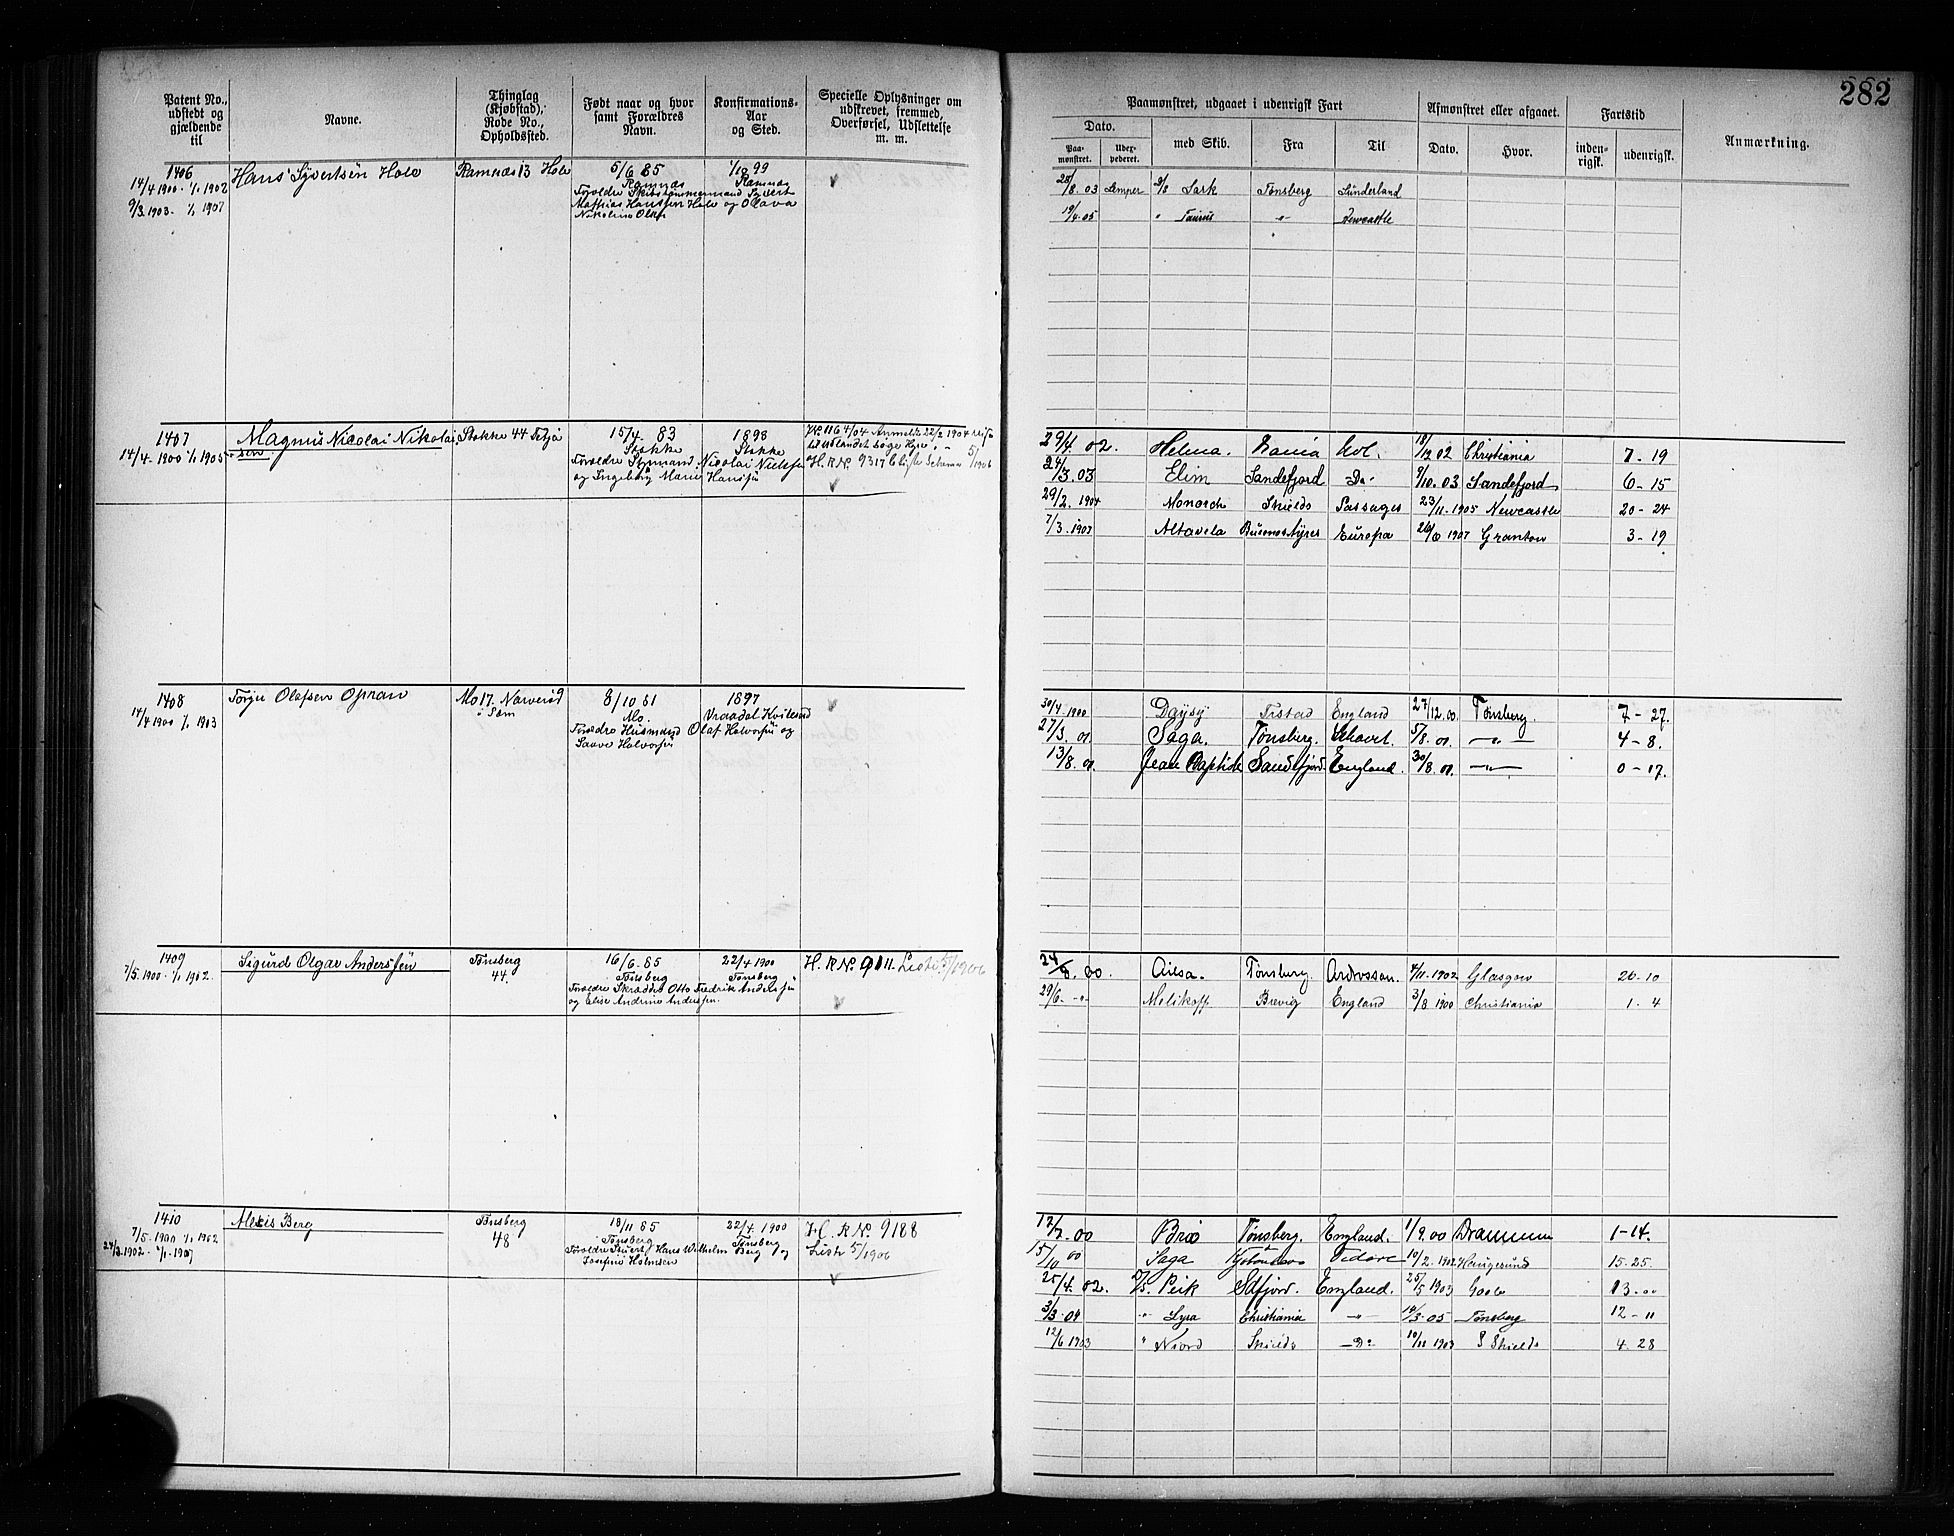 282
Patent No., udstedt og gjældende til
Navne.
Thinglag (Kjøbstad), Rode No., Opholdssted.
Født naar og hvor samt Forældres Navn.
Konfirmations-Aar og Sted.
Specielle Oplysninger om udskrevet, fremmed, Overførsel, Udslettelse m. m.
Paamønstret, udgaaet i udenrigsk Fart
Afmønstret eller afgaaet.
Fartstid
Anmærkning.
Dato.
med Skib.
Fra
Til
Dato.
Hvor.
inden-rigsk.
udenrigsk.
Paa-mønstret.
1406
14/4 1900 - 1/1 1902
9/3 1903 - 1/1 1907
Hans Syvertsen Holo
Ramnæs 13 Holo
5/6 85
Ramnæs
Forældre Skibstømmermand Syvert
Mathias Hanssen Holo og Olava
Nikoline Olsen
1/10 99
Ramnæs
28/8 03 Lemper 2/3 Sark Tønsberg Sunderland
19/4 05 " Taurus -"- Newcastle
1407
14/4 1900 1/1 1905
Magnus Nicolai Nikolaisen
Stokke 44
15/4 83
Stokke
Forældre Styrmand Nicolai Nielsen
og Ingeborg Marie Hanssen
1898
Stokke
29/4 02. Helena. 18/12 02 Christiania 7 - 19
24/3 03 Elim Sandefjord Do 9/10 03 Sandefjord 6 - 15
29/2 1904 Monarch Shields 23/11 1905 Newcastle 20 - 24
7/3 1907 Altavela Buenos Ayres Europa 26/6 1907 Granton 3 - 19
1408
14/4 1900 1/1 1903
Torju Olafsen Opran
Mo 17. Narverød i Sem
8/10 81
Mo.
Forældre Husmand Olaf Halvorsen og
Saave Halvorsen
1897
Vraadal Kviteseid
30/4 1900 Daysy England 27/12 00. Tønsberg. 7 - 27.
27/3 01 Saga. Tønsberg. 5/8 01. -"- 4 - 8.
13/8 01. Jean Baptiste Sandefjord England. 30/8 01. -"- 0 - 17.
1409
7/5 1900 - 1/1 1902.
Sigurd Olgar Anderssen
Tønsberg
44.
16/6 85
Tønsberg
Forældre Skrædder Otto Fredrik Anderssen
og Elise Andrine Anderssen.
22/4 1900
Tønsberg
H. R No. 9111. Liste 5/1906
24/8 00. Ailsa. Tønsberg. Ardrossan. 4/11 1902 Glasgow 26 - 10
29/6 -"- Melikoff Brevig England 3/8 1900 Christiania 1 - 4
1410
7/5 1900 1/1 1902
24/3 1902 - 1/1 1907
Alexis Berg
Tønsberg
48
18/11 85
Tønsberg
Forældre Stuert Hans Wilhelm Berg og
Josefine Holmsen
22/4 1900
Tønsberg
H. R No. 9188
Liste 5/1906
12/7 00 Brio Tønsberg. England. 1/9 00 Drammen 1 - 14.
15/10 00 Saga 10/2 1902 Haugesund 15. 25.
25/4 02. Peik Sdfjord. England. 25/5 1903 Goole 13 - 00
3/3 04 " Lyra Christiania -"- 14/3 05 Tønsberg 12 - 11
12/6 1903 " Niord Shields - Do 10/11 1903 S Shields 4. 28